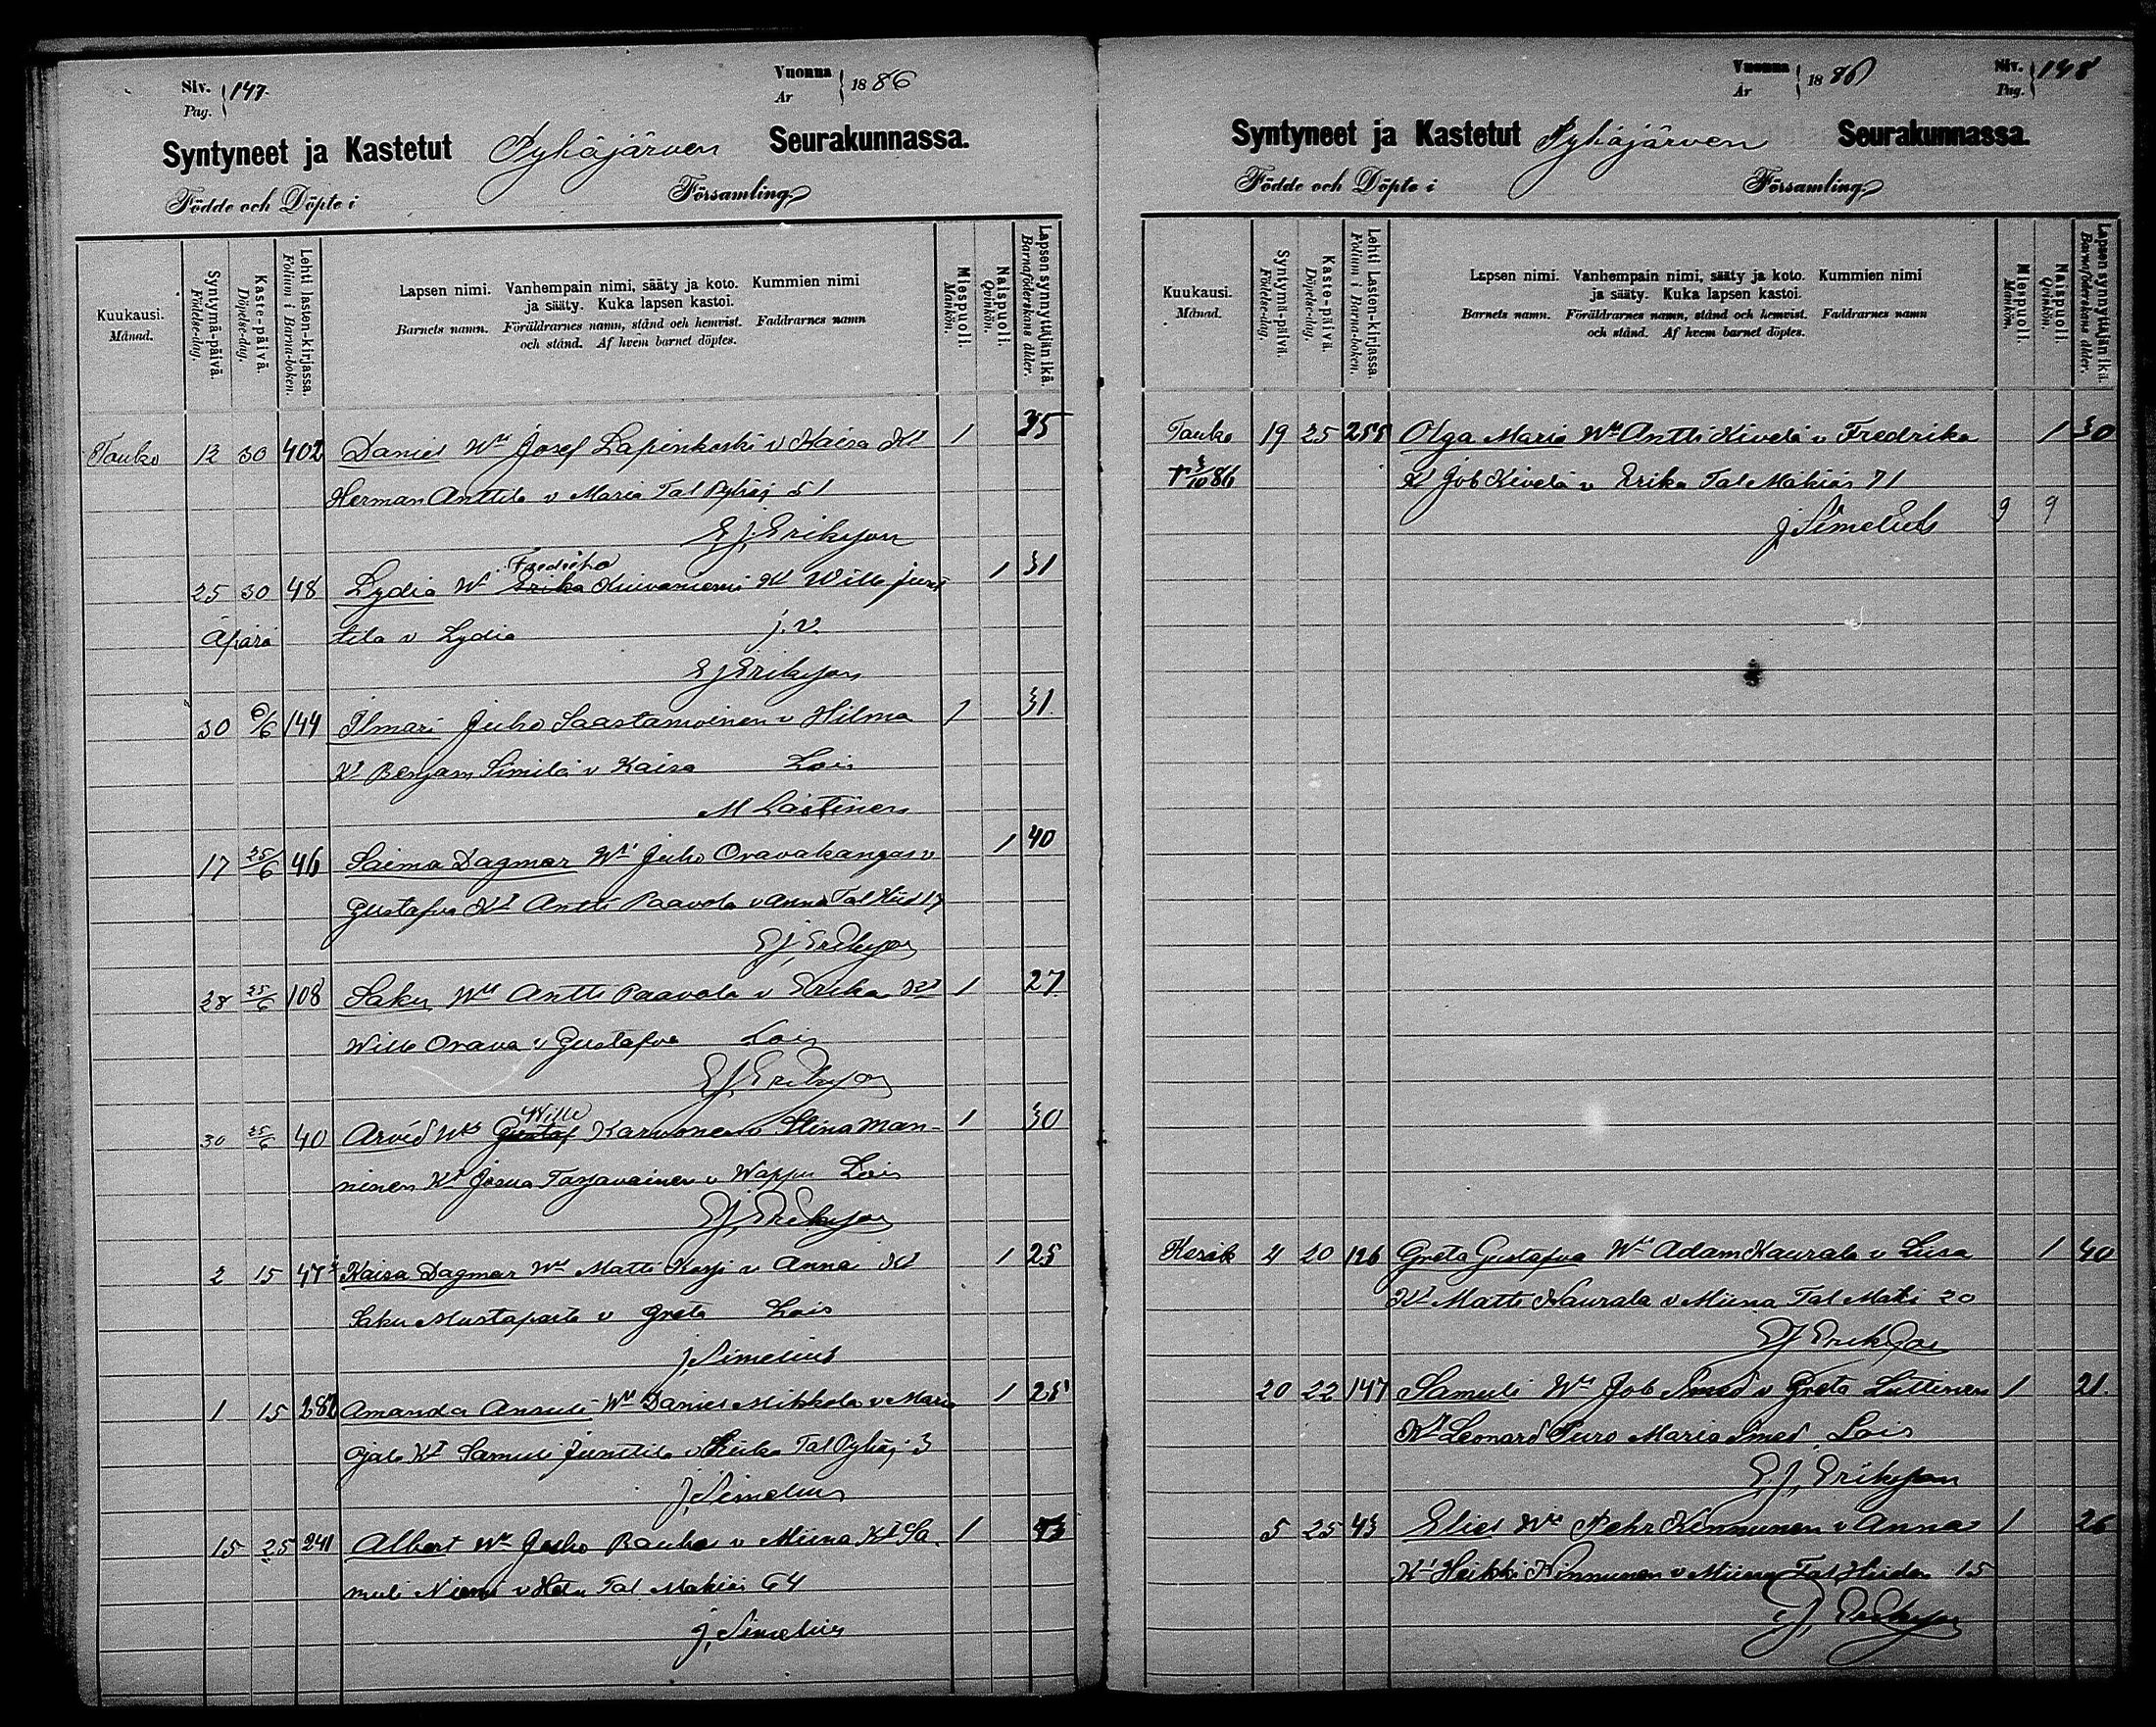 Siv. 147.
Pag.
Vuonna 1886
År
Syntyneet ja Kastetut Pyhäjärven Seurakunnassa.
Födde och Döpte i Församling
Kuukausi.
Månad.
Syntymä-päivä.
Födelse-dag.
Kaste-päivä.
Döpelse-dag.
Lehti lasten-kirjassa.
Folium i Barna-boken.
Lapsen nimi. Vanhempain nimi, sääty ja koto. Kummien nimi
ja sääty. Kuka lapsen kastoi.
Barnets namn. Föräldrarnes namn, stånd och hemvist. Faddrarnes namn
och stånd. Af hvem barnet döptes.
Miespuoli.
Mankön.
Naispuoli.
Qvinkön.
Lapsen synnyttäjän ikä.
Barnaföderskans ålder.
Touko 12 30 402 Daniel Wt Josef Lapinkoski v Kaisa Kt 1 35
Herman Anttila v Maria Tal Pyhäj 51
E.J. Eriksson
Fredrika
25 30 48 Lydia Wt Erika Kuivaniemi Kt Wille Junt 1 31
Äpärä tila v Lydia j.v.
E J Eriksson
30 6/6 144 Ilmari Juho Saastamoinen v Hilma 1 31
Kt Benjam Similä v Kaisa Lois
M Lästinen
17 25/6 46 Saima Dagmar Wt Juho Oravakangas v 1 40
Gustafva Kt Antti Paavola v Anna Tal Hiid 17
E J, Eriksson
28 25/6 108 Saku Wt Antti Paavola v Erika Kt 1 27
Wille Orava v Gustafva Lois
E J, Eriksson
Wille
30 25/6 40 Arvid Wt Gustaf Karvonen v Stina Man- 1 30
ninen Kt Josua Tarjavainen v Wappu Lois
E J, Eriksson
2 15 47 Kaisa Dagmar Wt Matti Korpi v Anna Kt 1 25
Saku Mustaparta v Greta Lois
J. Simelius
1 15 282 Amanda Ansuli Wt Daniel Mikkola v Maria 1 25
Ojala Kt Samuli Junttila v Tal Pyhäj 3
J, Simelius
15 25 241 Albert Wt Juho Rauha v Miina Kt Sa- 1 43
muli Niemi v Heta Tal Makiai 64
J, Simelius
Vuonna 1886
År
Siv. 148
Pag.
Syntyneet ja Kastetut Pyhäjärven Seurakunnassa.
Födde och Döpte i Församling
Kuukausi.
Månad.
Syntymä-päivä.
Födelse-dag.
Kaste-päivä.
Döpelse-dag.
Lehti Lasten-kirjassa.
Folium i Barna-boken.
Lapsen nimi. Vanhempain nimi, sääty ja koto. Kummien nimi
ja sääty. Kuka lapsen kastoi.
Barnets namn. Föräldrarnes namn, stånd och hemvist. Faddrarnes namn
och stånd. Af hvem barnet döptes.
Miespuoli.
Mankön.
Naispuoli.
Qvinkön.
Lapsen synnyttäjän ikä.
Barnaföderskans ålder.
Touko 19 25 255 Olga Maria Wt Antti Kivelä v Fredrika 1 30
† 3/10 86 Kt Job Kivelä v Erika Tal Mäkiäi 71
J Simelius 9 9
Kesäk 4 20 126 Greta Gustafva Wt Adam Kaurala v Liisa 1 40
Kt Matti Kaurala v Miina Tal Maki 20
E J Eriksson
20 22 147 Samuli Wt Job Smed v Greta Luttinen 1 21
Kt Leonard Puro Maria Smed Lois
E, J, Eriksson
5 25 43 Elies Wt Pehr Kinnunen v Anna 1 26
Kt Heikki Kinnunen v Miina Tal Hiiden 15
E J, Eriksson